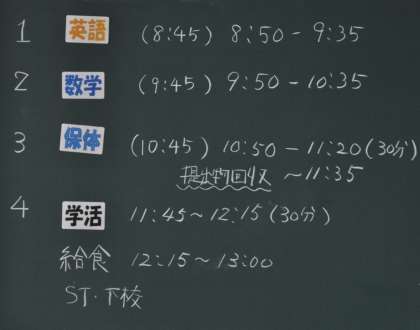 1 英語 (8:45) 8:50 - 9:35
2 数学 (9:45) 9:50 - 10:35
3 保体 (10:45) 10:50 - 11:20 (30分)
提出物回収 ~11:35
4 学活 11:45~12:15 (30分)
給食 12:15~13:00
ST・下校